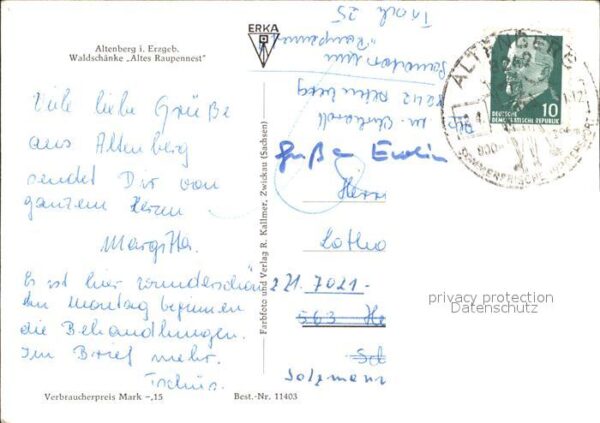 Altenberg i. Erzgeb.
Waldschänke „Altes Raupennest"
Viele liebe Grüße
aus Altenberg
sendet Dir von
ganzem Herzen
Margitta.
Es ist hier wunderschön
Am Montag beginnen
die Behandlungen.
Im Brief mehr.
Tschüs.
Verbraucherpreis Mark -,15
Best.-Nr. 11403
Farbfoto und Verlag R. Kallmer, Zwickau (Sachsen)
ERKA
Sanatorium
"Raupennest"
ALTENBERG
SOMMERFRISCHE
10
DEUTSCHE
DEMOKRATISCHE REPUBLIK
Herrn
Lotha
7021
Salzmann
privacy protection
Datenschutz